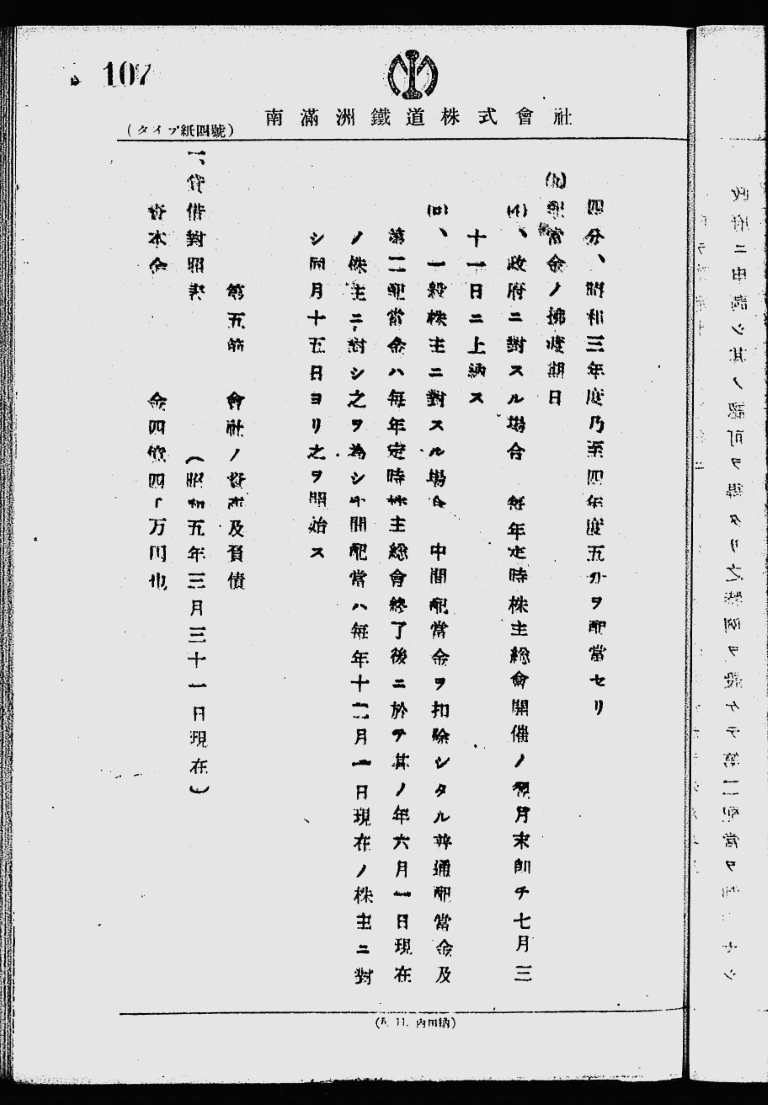 107
南滿洲鐵道株式會社
(タイプ紙四號)
四分、昭和三年度乃至四年度五分ヲ配當セリ
配當金ノ拂渡期日
(イ)、政府ニ對スル場合 每年定時株主總會開催ノ翌月末卽チ七月三
十一日ニ上納ス
(ロ)、一般株主ニ對スル場合 中間配當金ヲ扣除シタル普通配當金及
第二配當金ハ每年定時株主總會終了後ニ於テ其ノ年六月一日現在
ノ株主ニ對シ之ヲ為シ中間配當ハ每年十二月一日現在ノ株主ニ對
シ同月十五日ヨリ之ヲ開始ス
第五節 會社ノ資產及負債
一、貸借對照表 (昭和五年三月三十一日現在)
資本金 金四億四千万円也